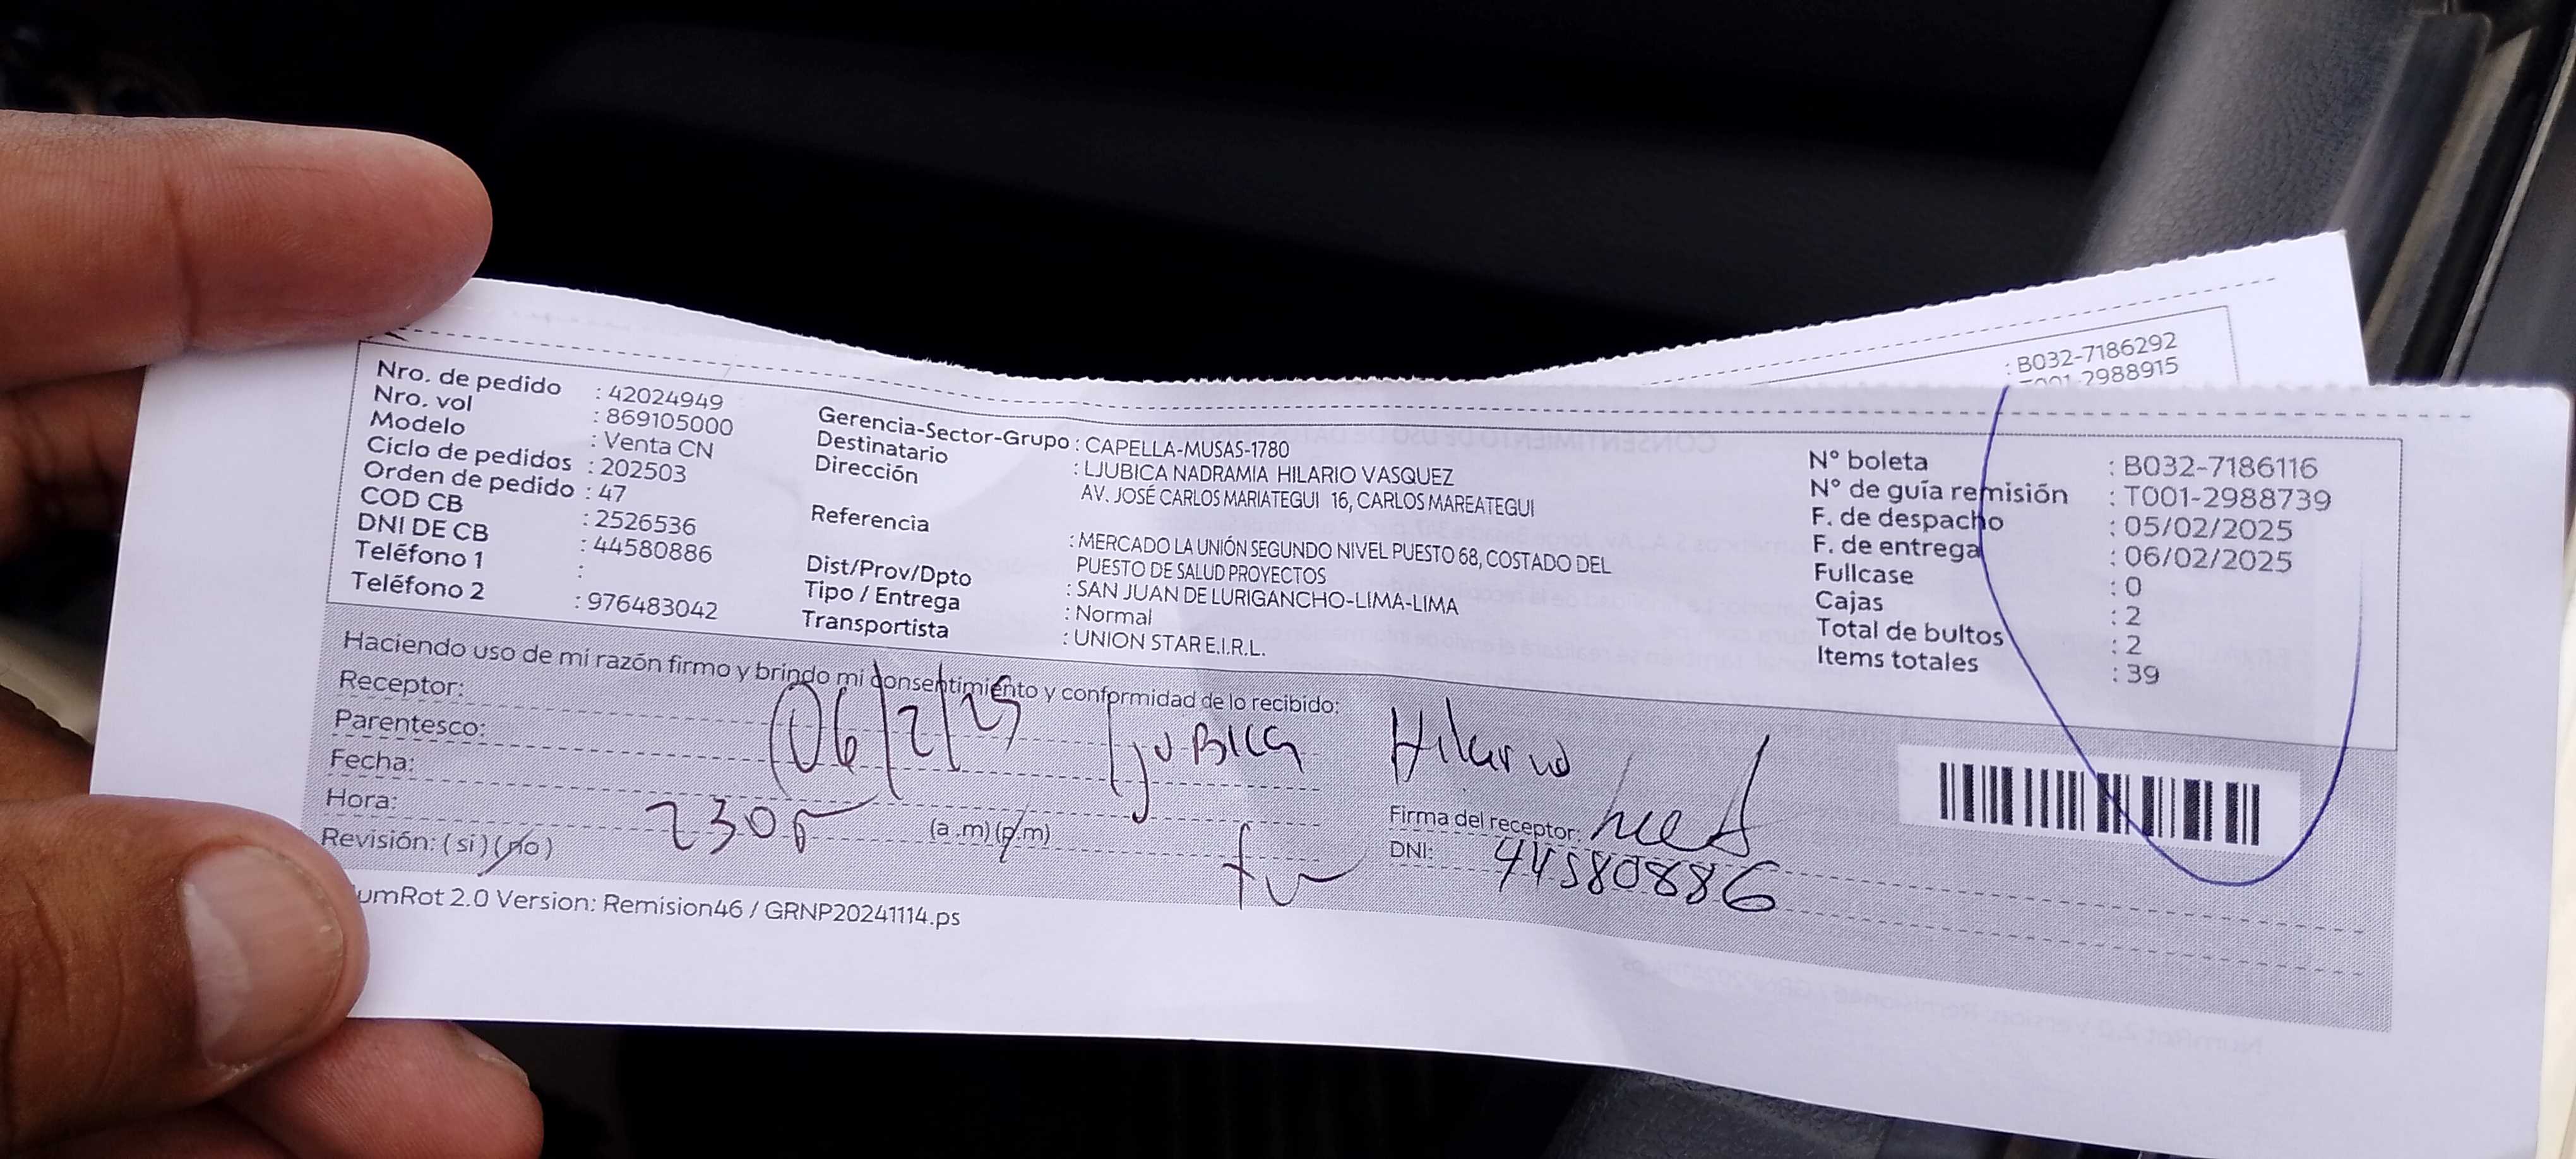 : B032-7186292
T001-2988915
Nro. de pedido : 42024949
Nro. vol : 869105000
Modelo : Venta CN
Ciclo de pedidos : 202503
Orden de pedido : 47
COD CB : 2526536
DNI DE CB : 44580886
Teléfono 1 :
Teléfono 2 : 976483042
Gerencia-Sector-Grupo : CAPELLA-MUSAS-1780
Destinatario : LJUBICA NADRAMIA HILARIO VASQUEZ
Dirección AV. JOSÉ CARLOS MARIATEGUI 16, CARLOS MAREATEGUI
Referencia : MERCADO LA UNIÓN SEGUNDO NIVEL PUESTO 68, COSTADO DEL
PUESTO DE SALUD PROYECTOS
Dist/Prov/Dpto : SAN JUAN DE LURIGANCHO-LIMA-LIMA
Tipo / Entrega : Normal
Transportista : UNION STAR E.I.R.L.
N° boleta : B032-7186116
N° de guía remisión : T001-2988739
F. de despacho : 05/02/2025
F. de entrega : 06/02/2025
Fullcase : 0
Cajas : 2
Total de bultos : 2
Items totales : 39
Haciendo uso de mi razón firmo y brindo mi consentimiento y conformidad de lo recibido:
Receptor:
Parentesco: 06/2/25 Ljubica Hilario
Fecha:
Hora: 2305 (a .m) (p.m)
Revisión: ( si ) ( no )
Firma del receptor:
DNI: 44580886
umRot 2.0 Version: Remision46 / GRNP20241114.ps